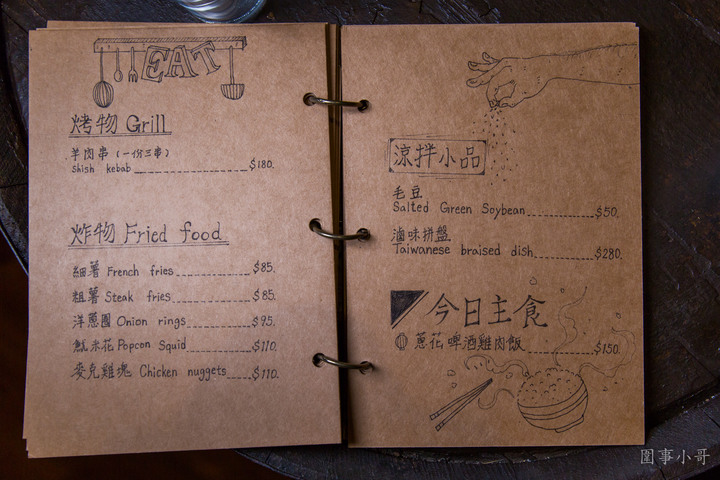 EAT
烤物 Grill
羊肉串 (一份三串)
Shish kebab $180.
炸物 Fried food
細薯 French fries $85.
粗薯 Steak fries $85.
洋蔥圈 Onion rings $95.
魷米花 Popcon Squid $110.
麥克雞塊 Chicken nuggets $110.
涼拌小品
毛豆
Salted Green Soybean $50.
滷味拼盤
Taiwanese braised dish $280.
今日主食
蔥花啤酒雞肉飯 $150.
圍事小哥